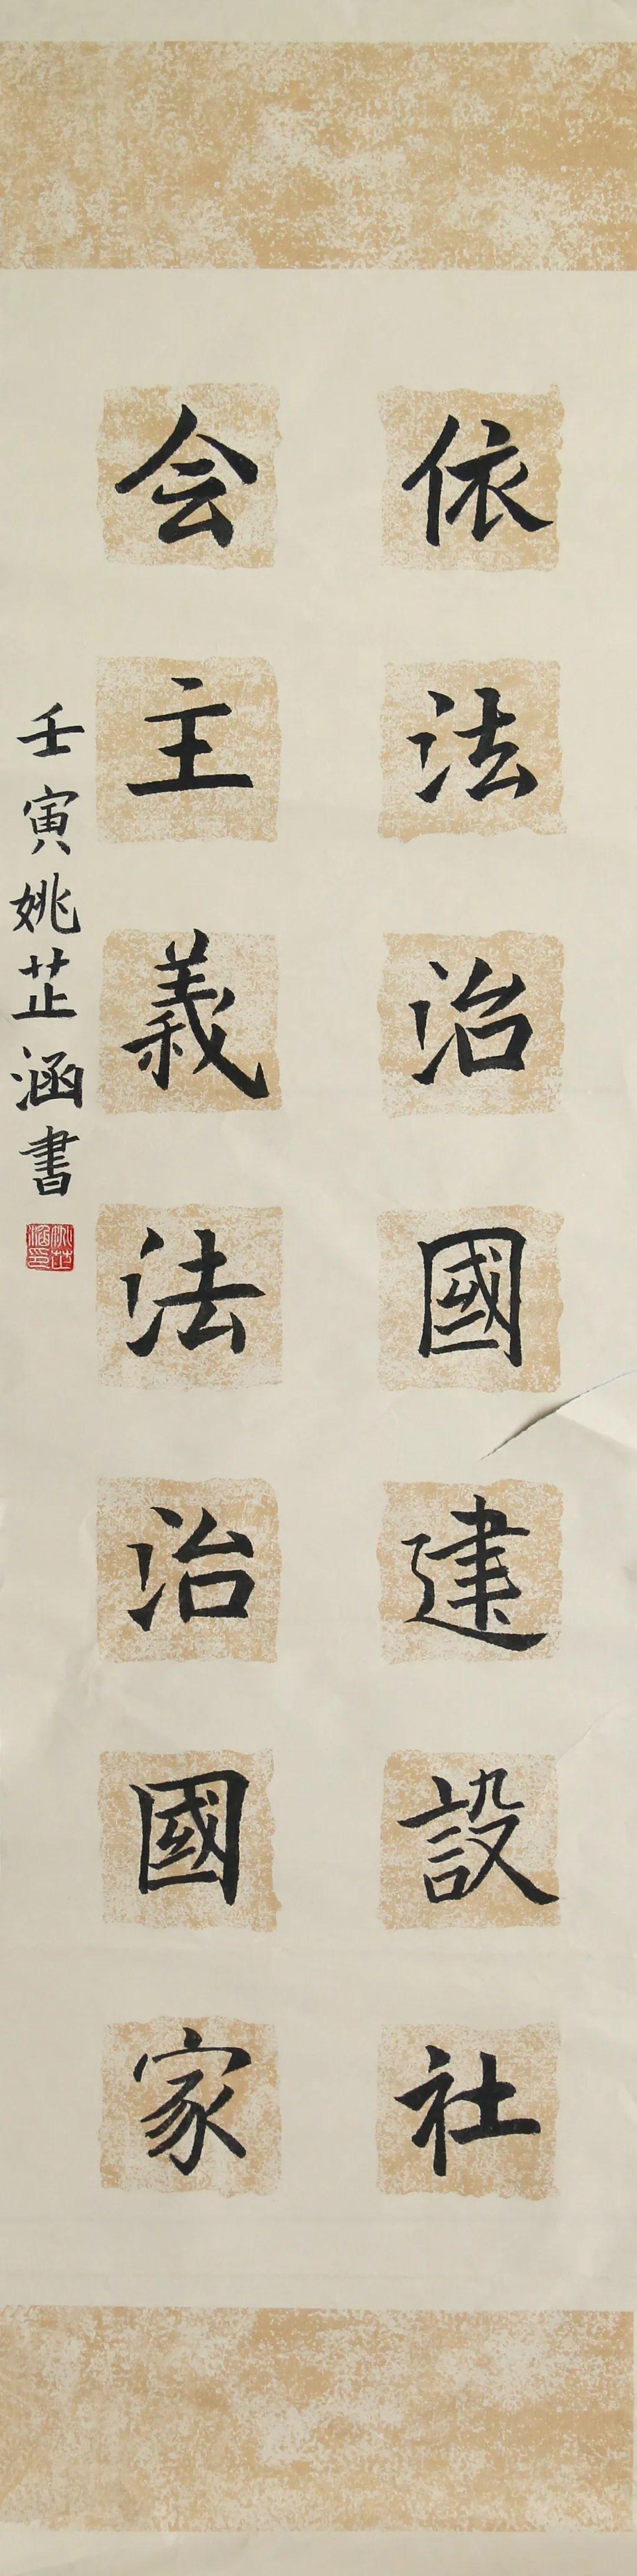 依法治國建設社
会主義法治國家
壬寅姚芷涵書